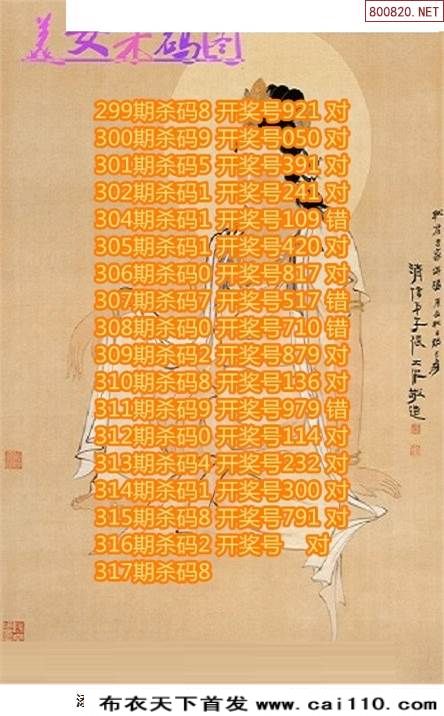 800820.NET
美女杀码图
299期杀码8 开奖号921 对
300期杀码9 开奖号050 对
301期杀码5 开奖号391 对
302期杀码1 开奖号241 对
304期杀码1 开奖号109 错
305期杀码1 开奖号420 对
306期杀码0 开奖号817 对
307期杀码7 开奖号517 错
308期杀码0 开奖号710 错
309期杀码2 开奖号879 对
310期杀码8 开奖号136 对
311期杀码9 开奖号979 错
312期杀码0 开奖号114 对
313期杀码4 开奖号232 对
314期杀码1 开奖号300 对
315期杀码8 开奖号791 对
316期杀码2 开奖号 对
317期杀码8
布衣天下首发 www.cai110.com